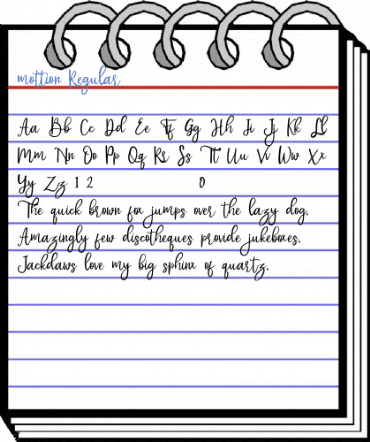 mottion Regular
Aa Bb Cc Dd Ee Ff Gg Hh Ii Jj Kk Ll
Mm Nn Oo Pp Qq Rr Ss Tt Uu Vv Ww Xx
Yy Zz 1 2 0
The quick brown fox jumps over the lazy dog.
Amazingly few discotheques provide jukeboxes.
Jackdaws love my big sphinx of quartz.